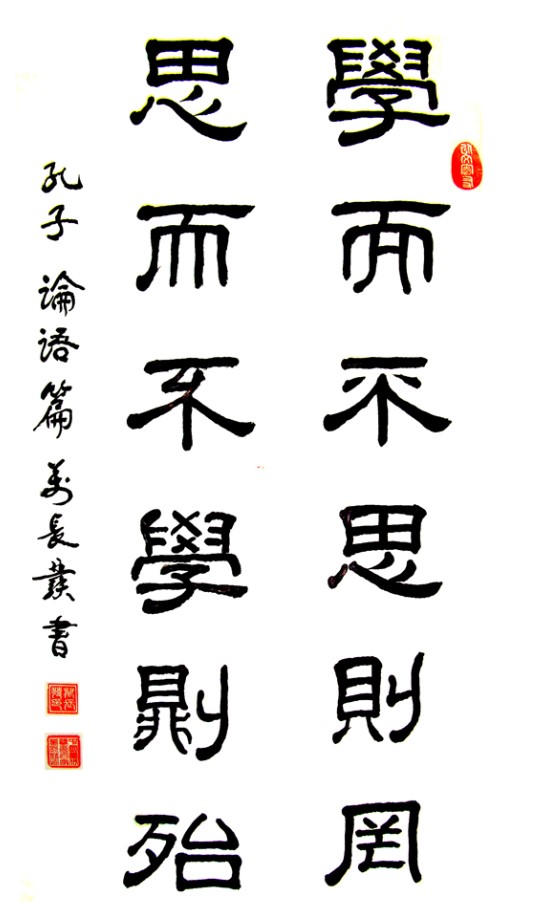 學而不思則罔
思而不學則殆
孔子論语篇萬長叢書